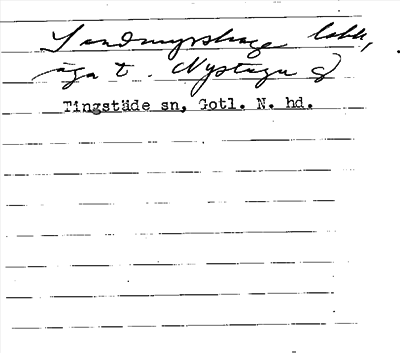 Sandmyrshage lokk,
äga t. Nystuga g
Tingstäde sn, Gotl. N. hd.